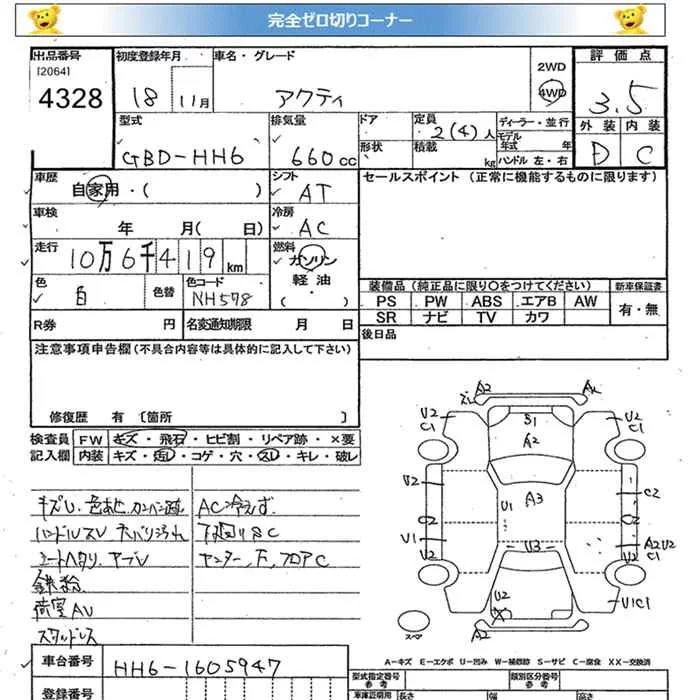 完全ゼロ切りコーナー
出品番号 初度登録年月 車名・グレード 2WD 評価点
[2064]
4328 18 11月 アクティ 4WD 3.5
型式 排気量 ドア 定員 2(4)人 ディーラー・並行 外装 内装
GBD-HH6 660cc 形状 積載 kg モデル年式 年 D C
ハンドル 左・右
車歴 自家用・( ) シフト AT セールスポイント (正常に機能するものに限ります)
車検 年 月( 日) 冷房 AC
走行 10万6千419km 燃料 ガソリン
軽油
・( )
色 白 色替 色コード NH578 装備品 (純正品に限り○をつけてください) 新車保証書
PS PW ABS エアB AW 有・無
SR ナビ TV カワ
R券 円 名変通知期限 月 日 後日品
注意事項申告欄 (不具合内容等は具体的に記入して下さい)
修復歴 有 [箇所 ]
検査員 FW キズ・飛石・ヒビ割・リペア跡・×要
記入欄 内装 キズ・コゲ・穴・スレ・キレ・破レ
キズU、色あせ、カンバン跡 AC冷えず
ハンドルスレ 下回りSC
シートヘタリ、ヤブレ
鉄粉
荷室AU
スタッドレス
A2 A2
U2 C1 S1 A2 U2 C1
V2 U1 A3 C2
C2 C2
V1 V2 U3 A2 U2 V2
U2 X A2 U1C1
スペア
A-キズ E-エクボ U-凹み W-補修跡 S-サビ C-腐食 XX-交換済
車台番号 HH6-1605947 型式指定番号 参考 類別区分番号 参考
登録番号 車庫証明用 参考 長さ 幅 高さ